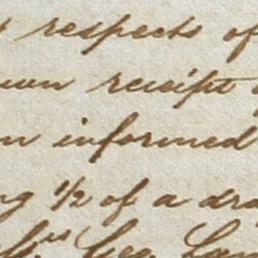 respects of
own receipt
informed
ng 1/2 of a dra
Geo. Lam